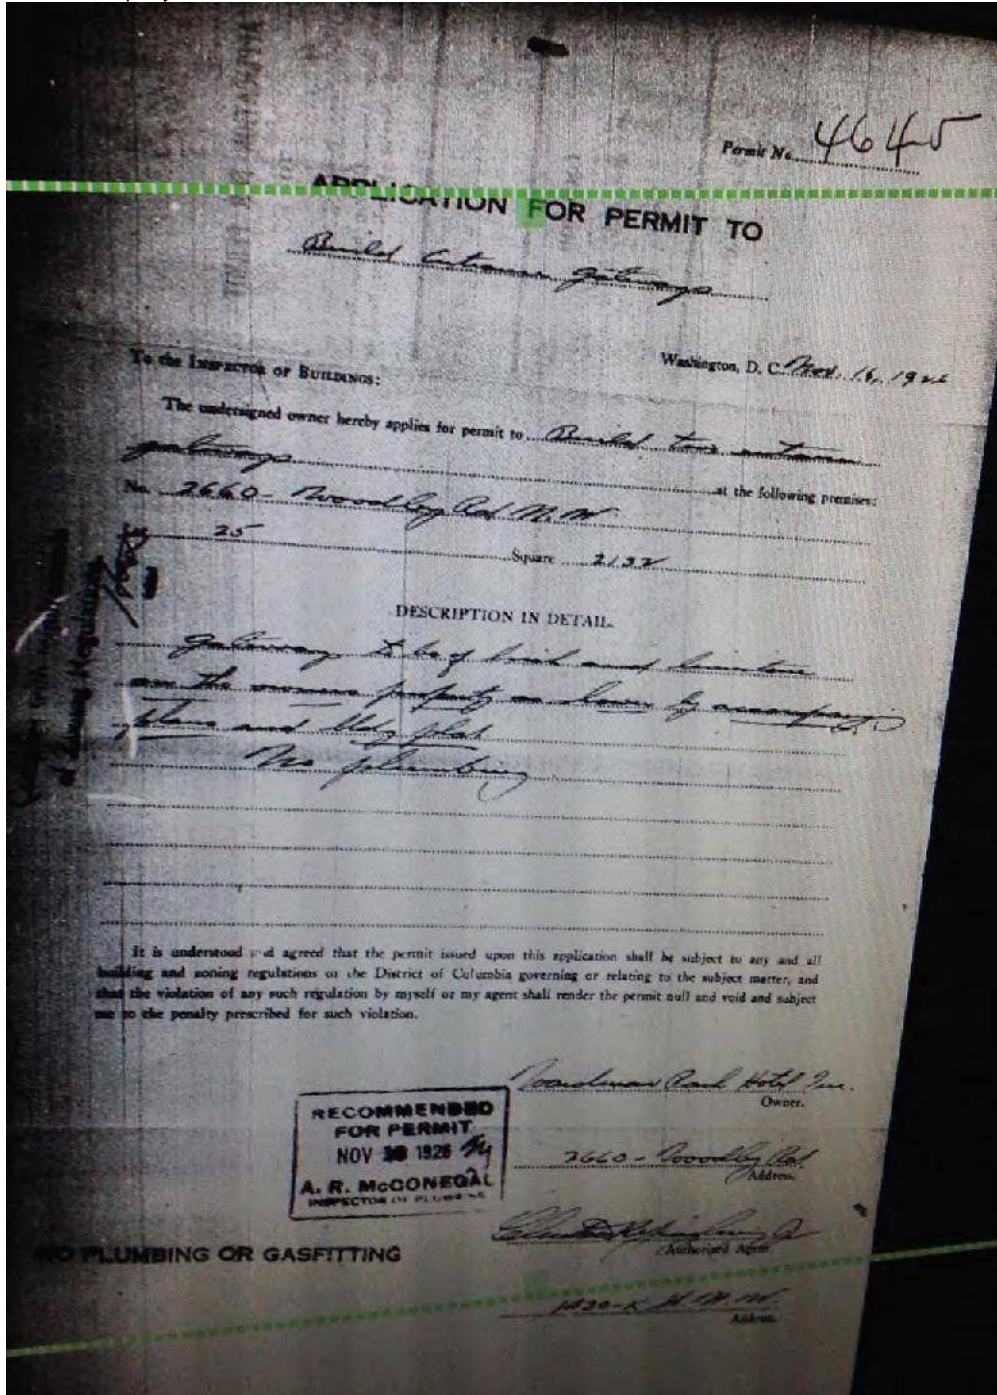 Permit No. 4645
APPLICATION FOR PERMIT TO
Build Entrance gateways
Washington, D. C. Nov. 16, 192
To the INSPECTOR OF BUILDINGS:
The undersigned owner hereby applies for permit to Build two entrance
gateways at the following premises:
No. 2660 - Woodley Rd N.W.
25 Square 2132
DESCRIPTION IN DETAIL.
Gateway to be of brick and limestone
on the owners property as shown by accompanying
plans and bldg plat
No plumbing
It is understood and agreed that the permit issued upon this application shall be subject to any and all
building and zoning regulations of the District of Columbia governing or relating to the subject matter, and
that the violation of any such regulation by myself or my agent shall render the permit null and void and subject
me to the penalty prescribed for such violation.
Wardman Park Hotel Inc.
Owner.
RECOMMENDED
FOR PERMIT
NOV 1926
A. R. McGONEGAL
INSPECTOR OF PLUMBING
2660 - Woodley Rd
Address.
Authorized Agent.
NO PLUMBING OR GASFITTING
1430 - K St N.W.
Address.